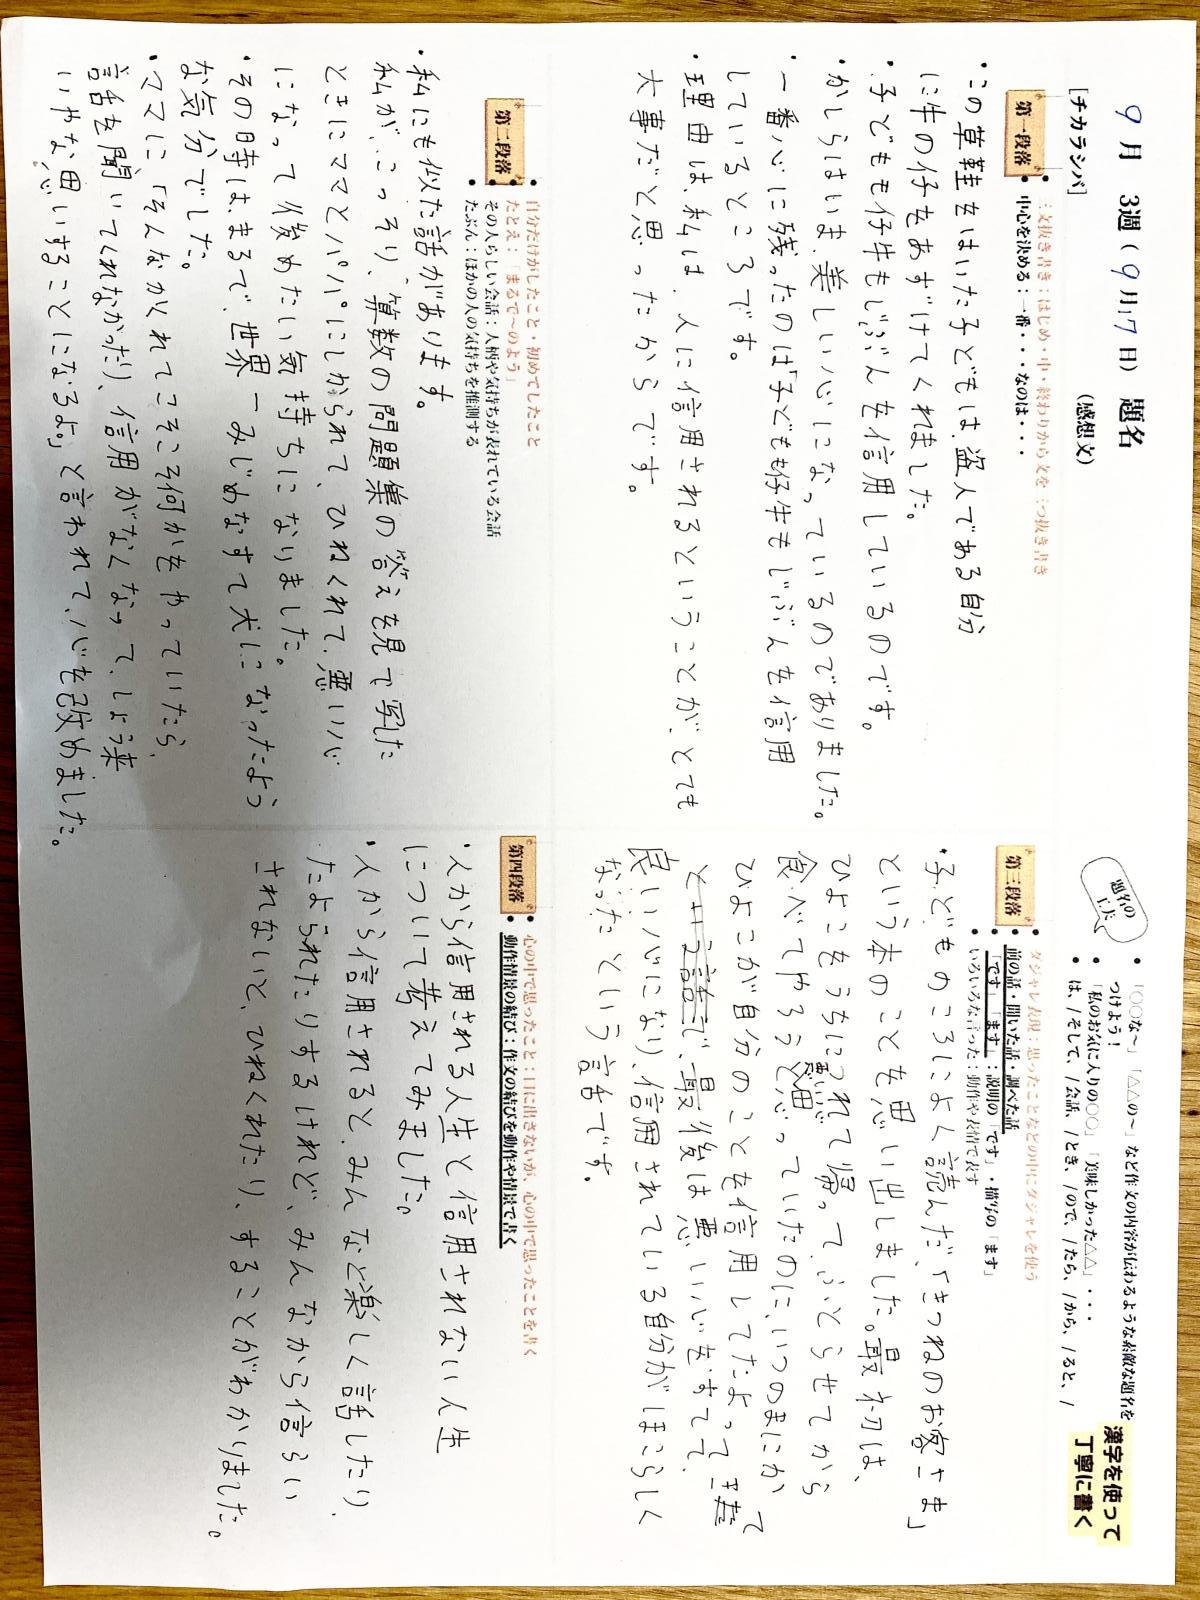 9月 3週(9月17日) 題名
[チカラシバ] (感想文)
第一段落
三文抜き書き:はじめ・中・終わりから文を三つ抜き書き
中心を決める:一番・・・なのは・・・
・この草鞋をはいた子どもは、盗人である自分
に牛の仔をあずけてくれました。
・子どもも仔牛もじぶんを信用しているのです。
・かしらはいま、美しい心になっているのでありました。
・一番心に残ったのは「子どもも仔牛もじぶんを信用
しているところです。
・理由は、私は、人に信用されるということが、とても
大事だと思ったからです。
第二段落
・自分だけがしたこと・初めてしたこと
たとえ:「まるで〜のよう」
その人らしい会話:人柄や気持ちが表れている会話
・たぶん:ほかの人の気持ちを推測する
・私にも似た話があります。
私が、こっそり、算数の問題集の答えを見て写した
ときにママとパパにしかられて、ひねくれて、悪い心
になって後めたい気持ちになりました。
・その時は、まるで、世界一みじめなすて犬になったよう
な気分でした。
・ママに、「そんなかくれてこそこそ何かをやっていたら、
話を聞いてくれなかったり、信用がなくなって、しょう来
いやな思いすることになるよ。」と言われて、心を改めました。
題名の
・「○○な〜」「△△の〜」など作文の内容が伝わるような素敵な題名を
つけよう!
・「私のお気に入りの○○」「美味しかった△△」・・・
・は、/そして、/会話、/とき、/ので、/たら、/から、/ると、/
漢字を使って
丁寧に書く
第三段落
・ダジャレ表現:思ったことなどの中にダジャレを使う
前の話・聞いた話・調べた話
「です」「ます」:説明の「です」・描写の「ます」
・いろいろな言った:動作や表情で表す
・子どものころによく読んだ、「きつねのお客さま」
という本のことを思い出しました。最初は、
ひよこをうちにつれて帰って、ふとらせてから
食べてやろうと思っていたのに、いつのまにか
ひよこが自分のことを信用してたよって
という話で、最後は悪い心をすてて、
良い心になり、信用されている自分がほこらしく
なったという話です。
第四段落
・心の中で思ったこと:口に出さないが、心の中で思ったことを書く
・動作情景の結び:作文の結びを動作や情景で書く
・人から信用される人生と信用されない人生
について考えてみました。
・人から信用されると、みんなと楽しく話したり、
たよられたりするけれど、みんなから信らい
されないと、ひねくれたり、することがわかりました。